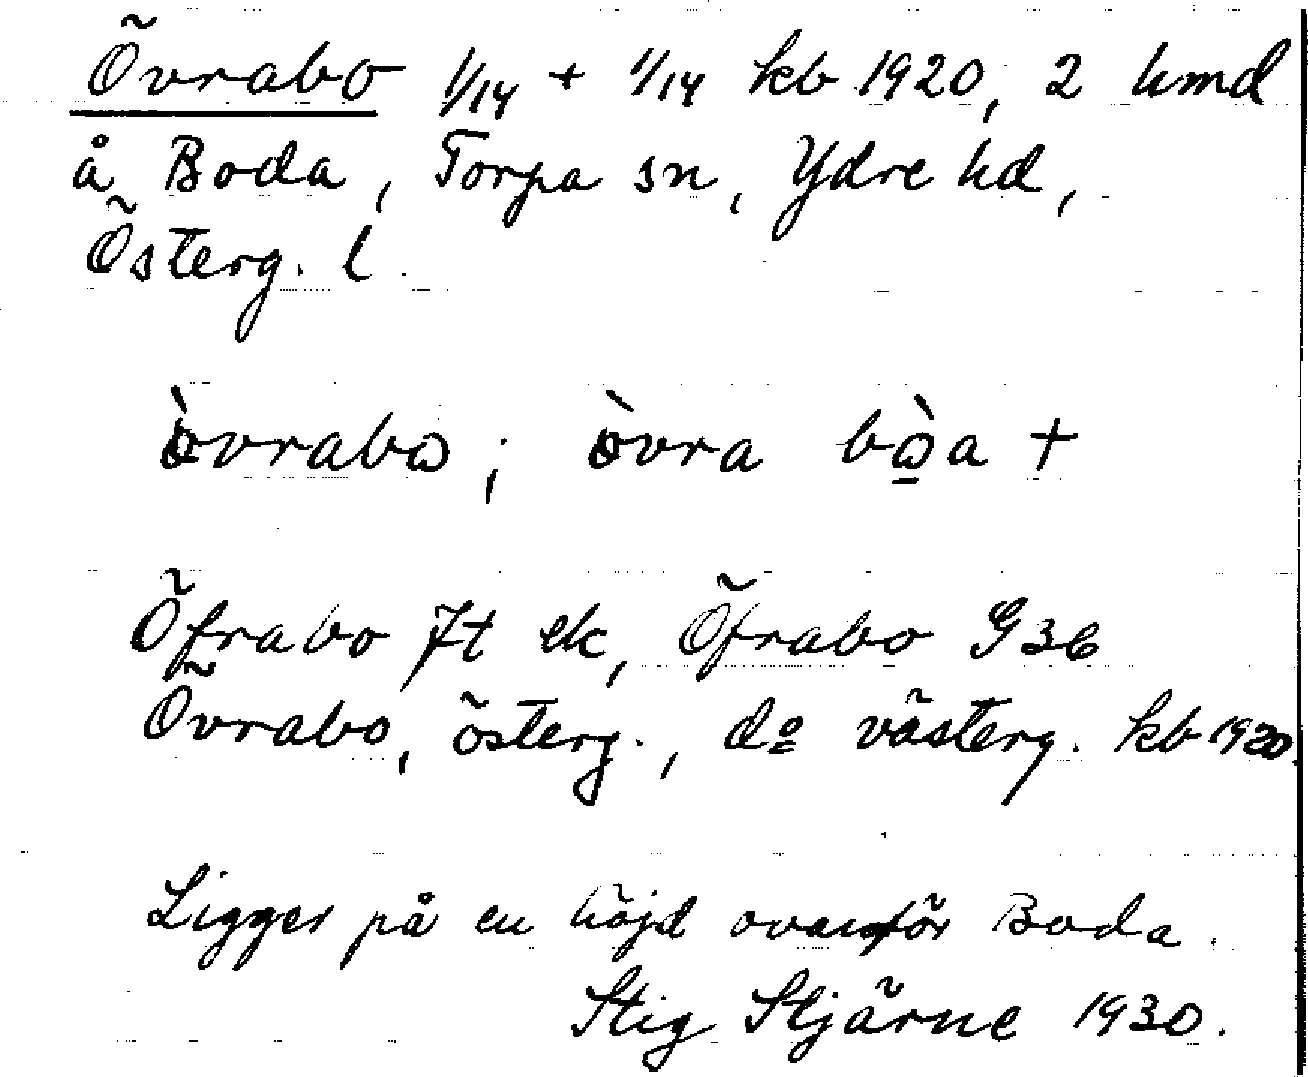 Övrabo 1/14 + 1/14 kb 1920, 2 hmd
å Boda, Torpa sn, Ydre hd,
Österg. l.
òvrabω; òvra bὼ̲a +
Öfrabo Jt ek, Öfrabo G 36
Övrabo, österg., dº västerg. kb 1920.
Ligger på en höjd ovanför Boda.
Stig Stjärne 1930.